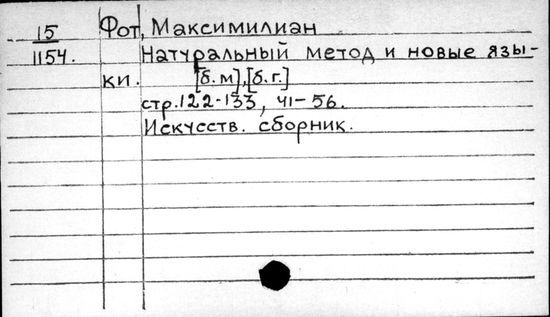 15 Фот, Максимилиан
1154. Натуральный метод и новые язы-
ки. [б.м],[б.г.]
стр.122-133, 41-56.
Искусств. сборник.